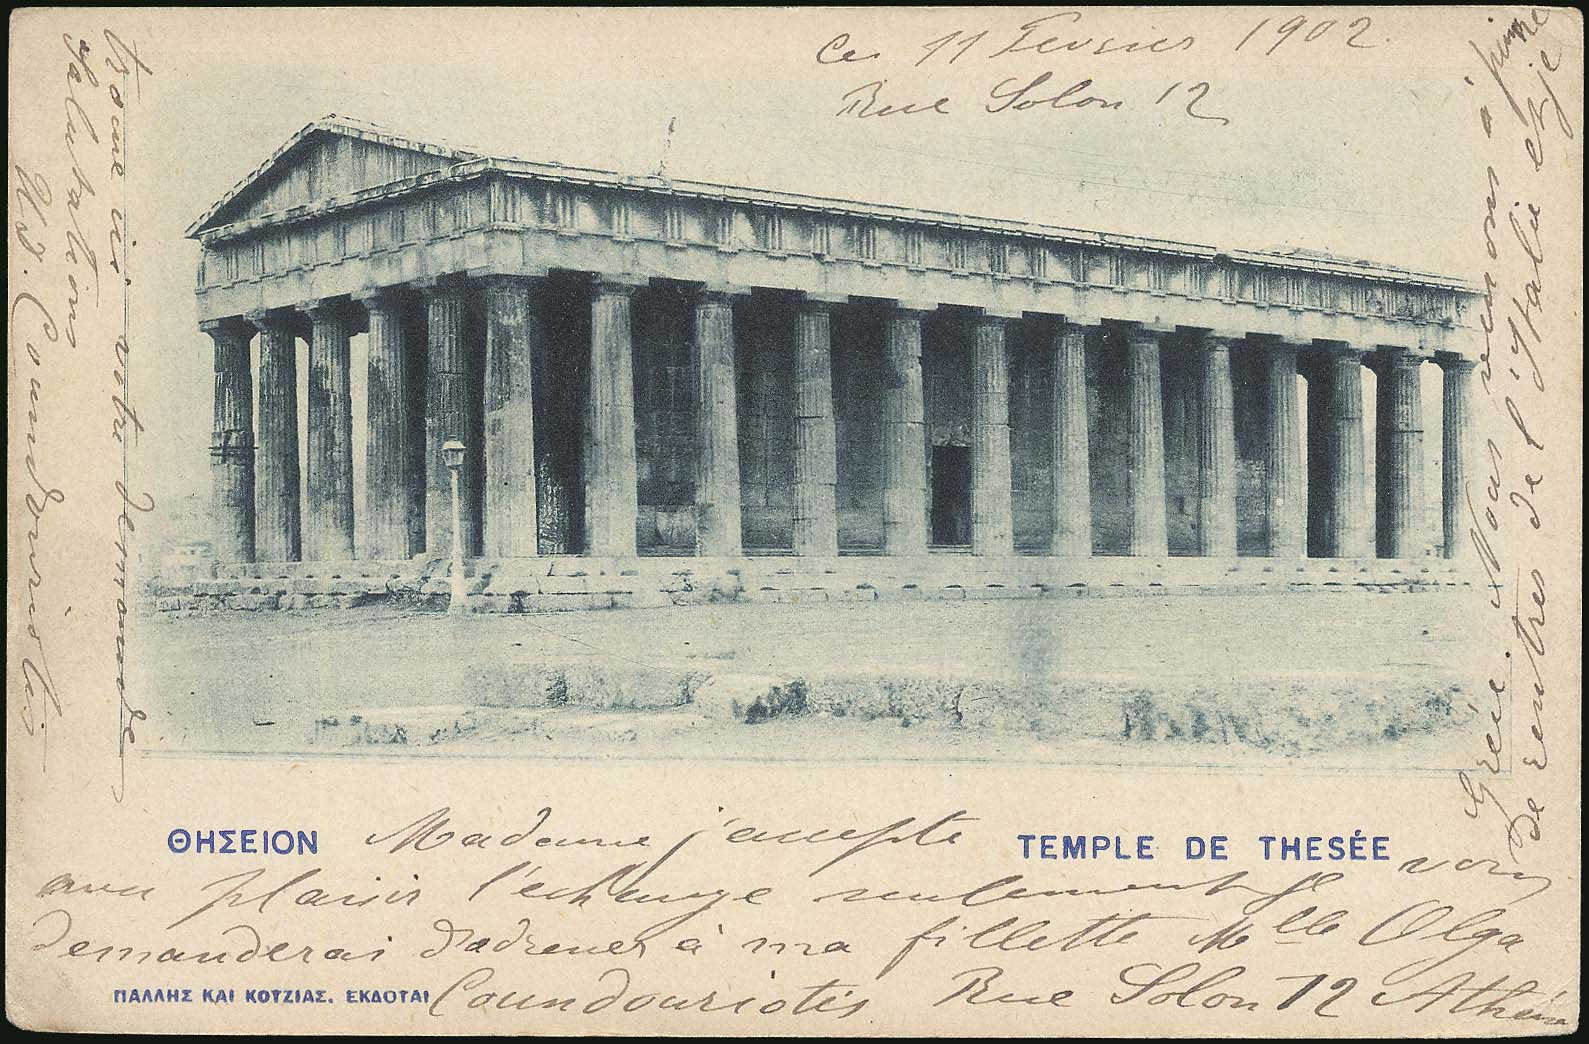 Ce 11 Fevrier 1902.
Rue Solon 12
ΘΗΣΕΙΟΝ
TEMPLE DE THESÉE
Madame j'accepte
avec plaisir l'echange seulement je vous
demanderai d'adresser à ma fillette Mlle Olga
Coundouriotis Rue Solon 12 Athènes
ΠΑΛΛΗΣ ΚΑΙ ΚΟΤΖΙΑΣ. ΕΚΔΟΤΑΙ
Grèce. Nous venons à peine
de rentrer de l'Italie et je
trouve ici votre demande
Salutations
D. Coundouriotis